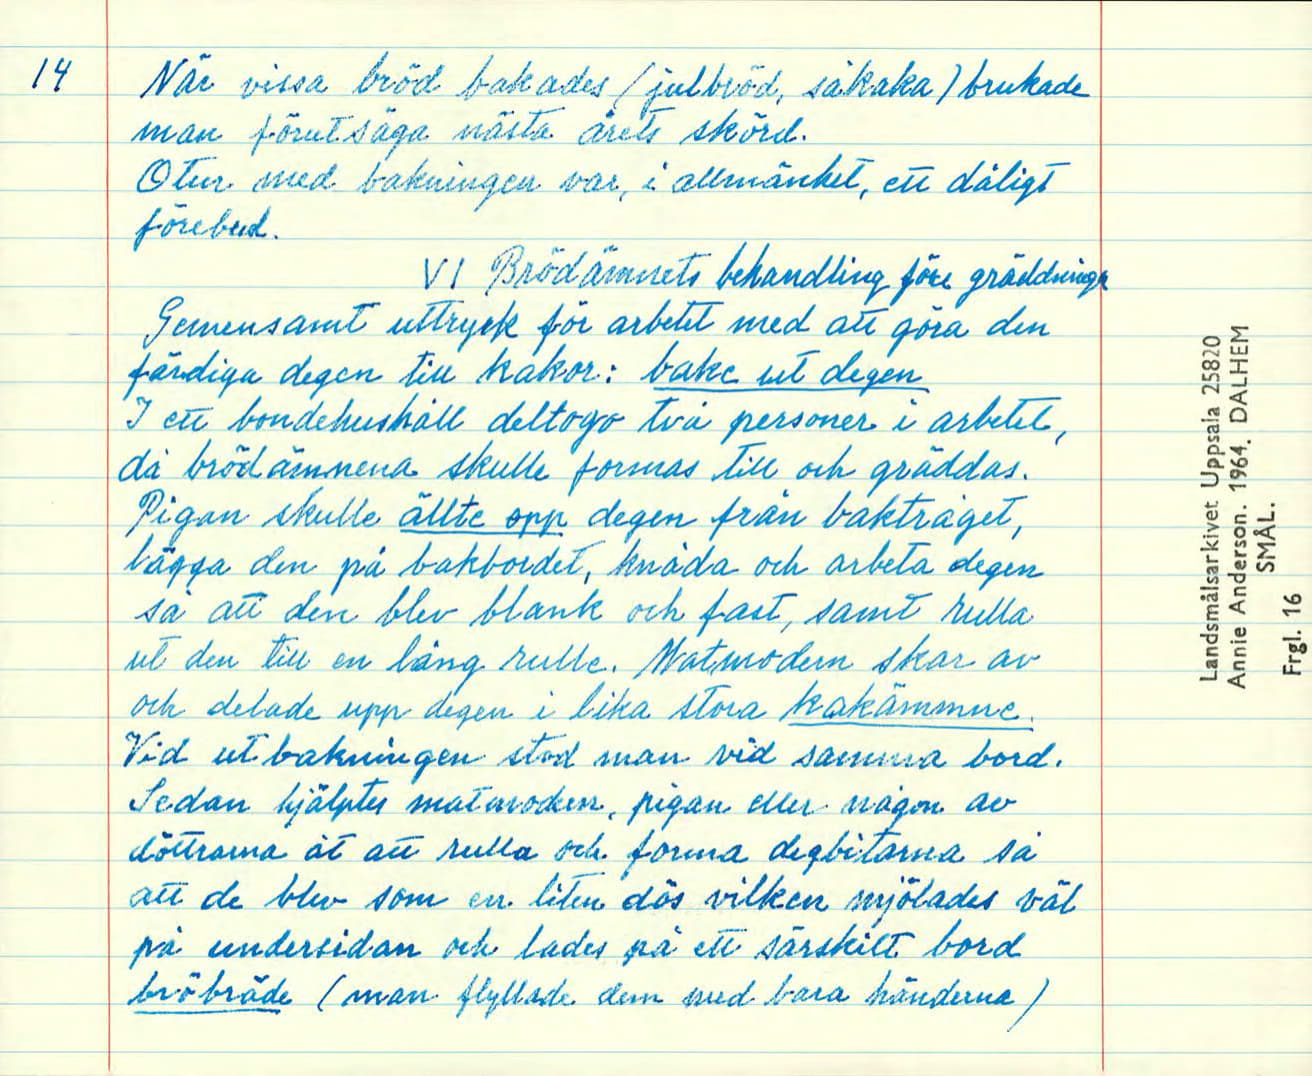 14
När vissa bröd bakades (julbröd, såkaka) brukade
man förutsäga nästa årets skörd.
Otur med bakningen var, i allmänhet, ett dåligt
förebud.
VI Brödämnets behandling före gräddninge
Gemensamt uttryck för arbetet med att göra den
färdiga degen till kakor: bake ut degen
I ett bondehushåll deltogo två personer i arbetet,
då brödämnena skulle formas till och gräddas.
Pigan skulle ällte opp degen från baktråget,
lägga den på bakbordet, knåda och arbeta degen
så att den blev blank och fast, samt rulla
ut den till en lång rulle. Matmodern skar av
och delade upp degen i lika stora kakämmne.
Vid utbakningen stod man vid samma bord.
Sedan hjälptes matmodern, pigan eller någon av
döttrarna åt att rulla och forma degbitarna så
att de blev som en liten dös vilken mjölades väl
på undersidan och lades på ett särskilt bord
bröbräde (man flyllade dem med bara händerna)
Landsmålsarkivet Uppsala 25820
Annie Anderson. 1964. DALHEM
SMÅL.
Frgl. 16